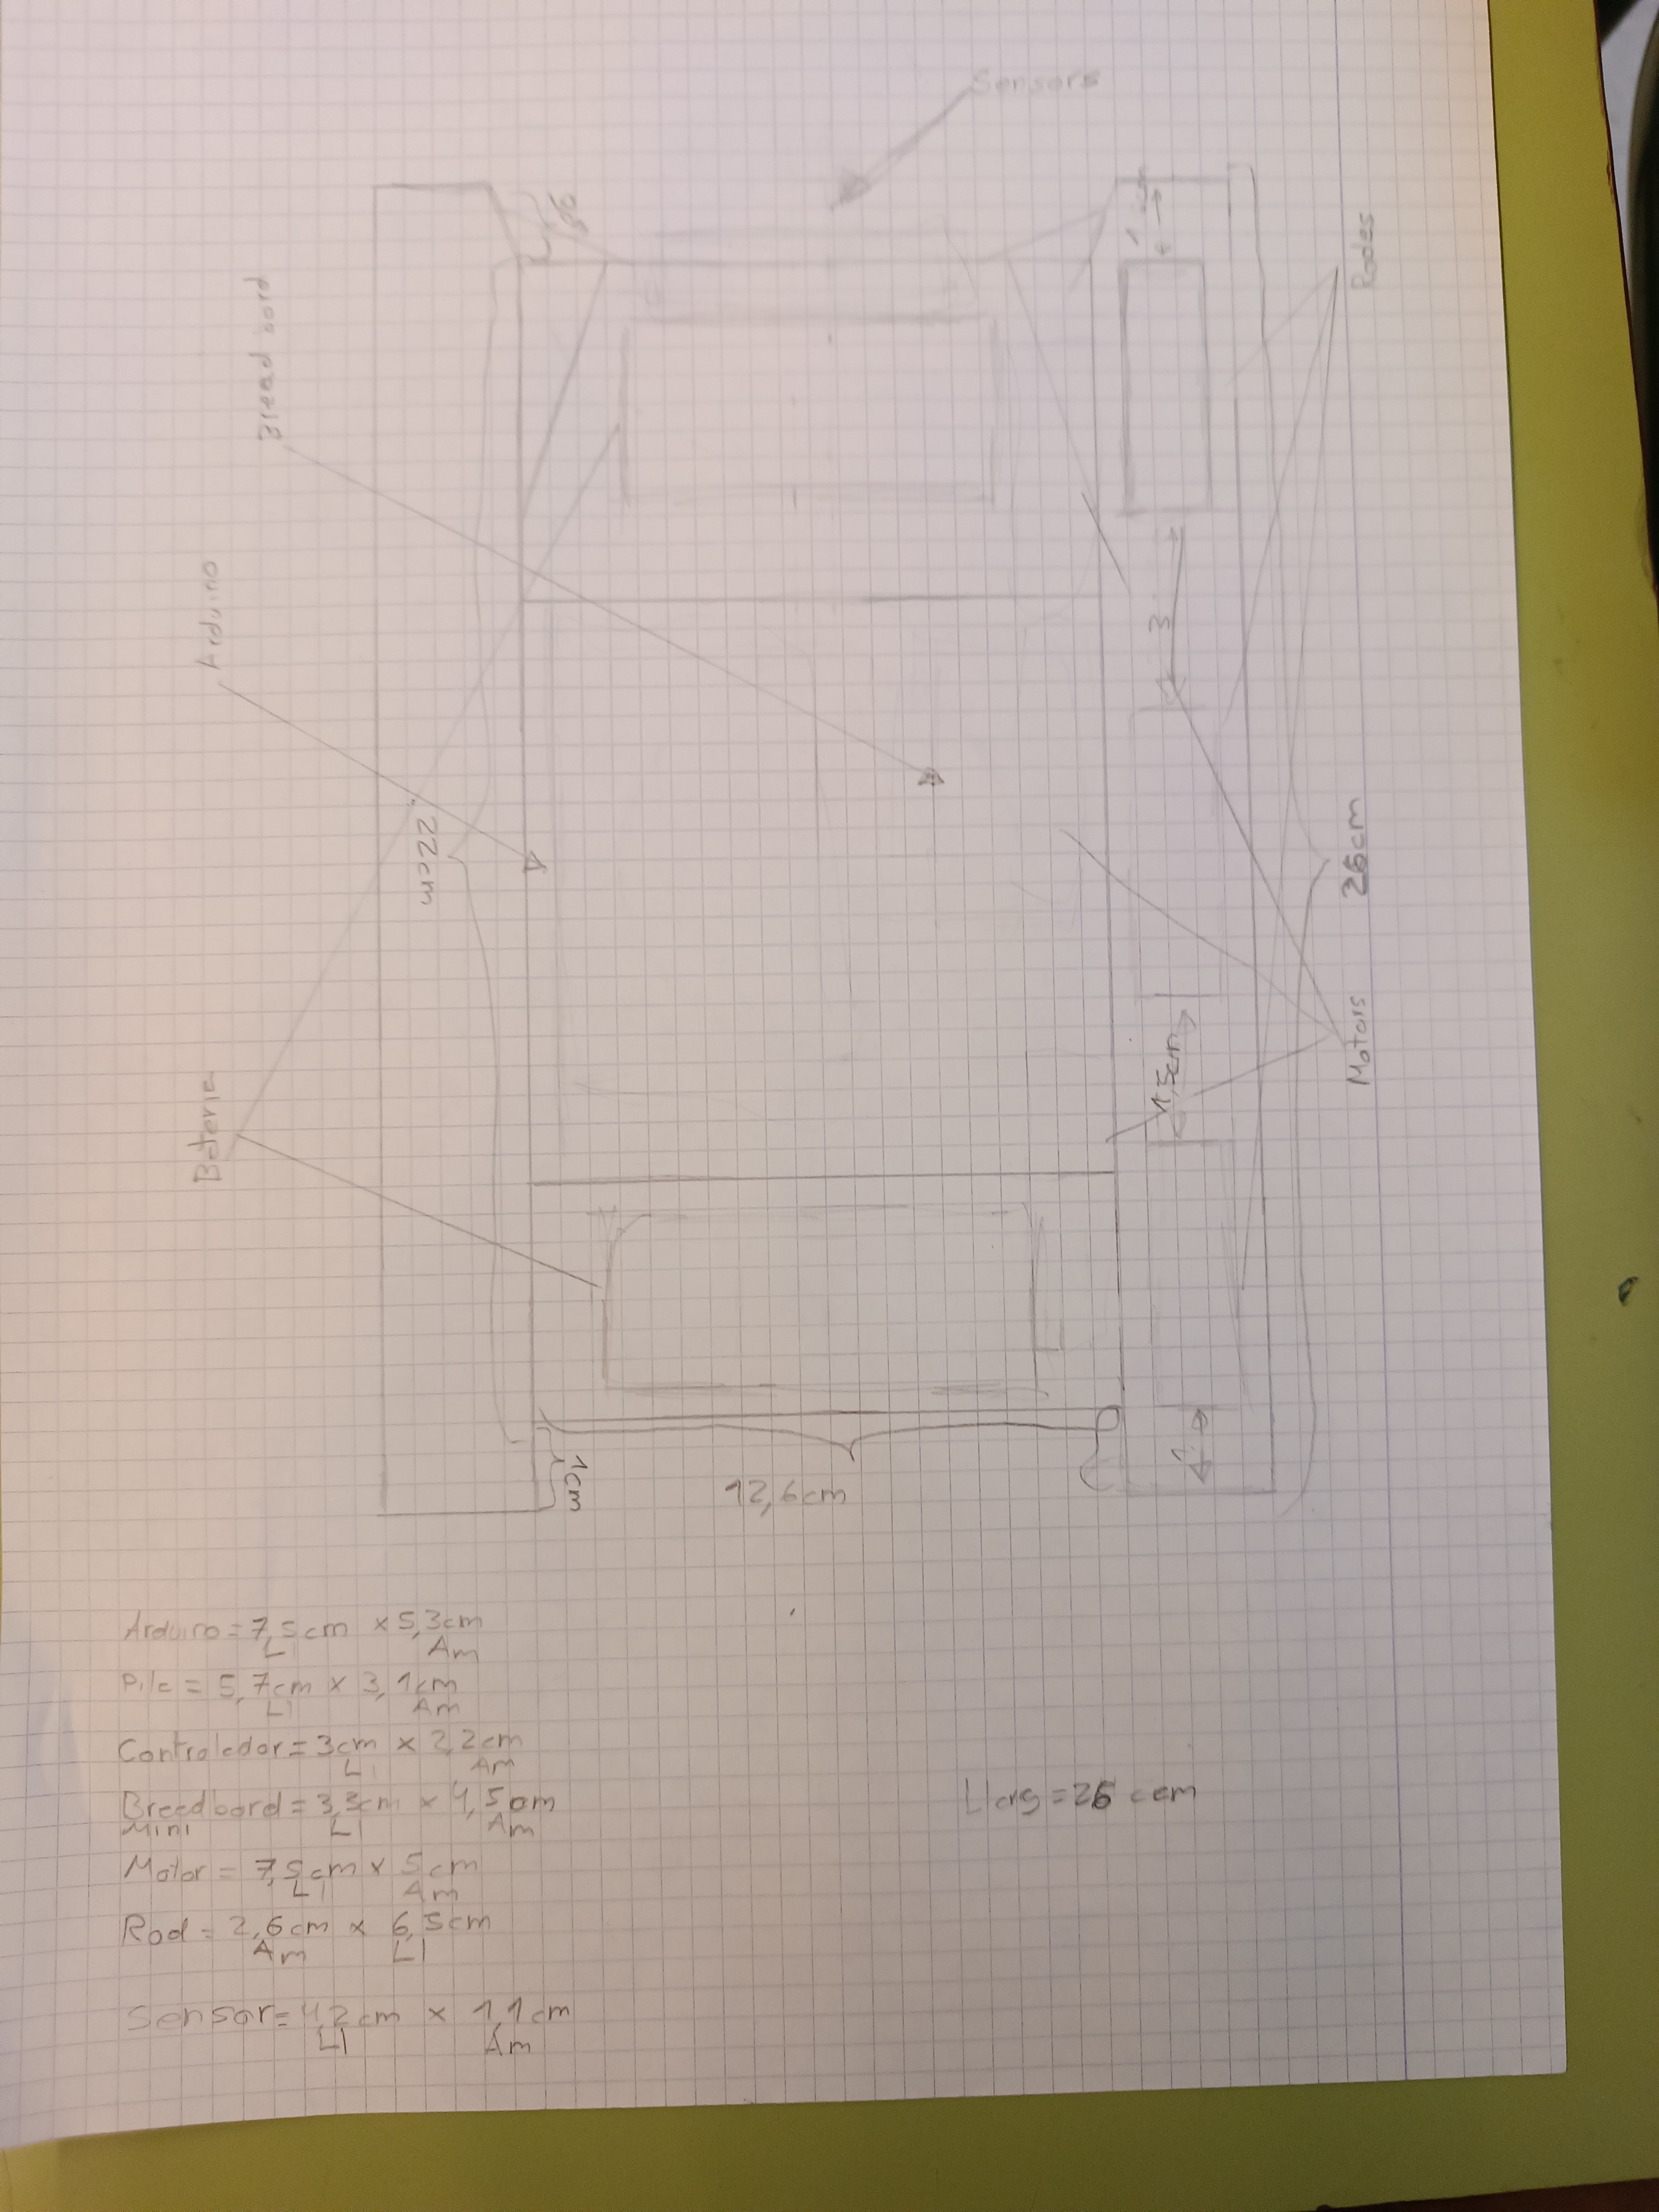 Sensors
Rodes
Bread bord
Arduino
22cm
3
26cm
1,5cm
Motors
Bateria
1
1cm
12,6cm
Arduino = 7,5cm x 5,3cm
Ll Am
Pila = 5,7cm x 3,1cm
Ll Am
Controlador = 3cm x 2,2cm
Ll Am
Breedbord = 3,3cm x 4,5cm
Mini Ll Am
Motor = 7,5cm x 5cm
Ll Am
Rod = 2,6cm x 6,5cm
Am Ll
Sensor = 4,2cm x 1,1cm
Ll Am
Llarg = 26 cm